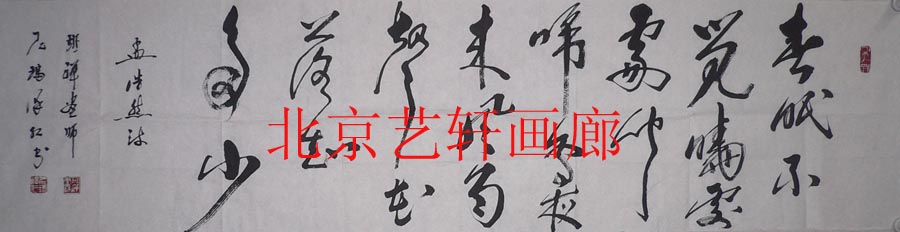 春眠不
觉晓处
處闻
啼鸟夜
来风雨
声花
落知
多少
孟浩然诗
北京艺轩画廊